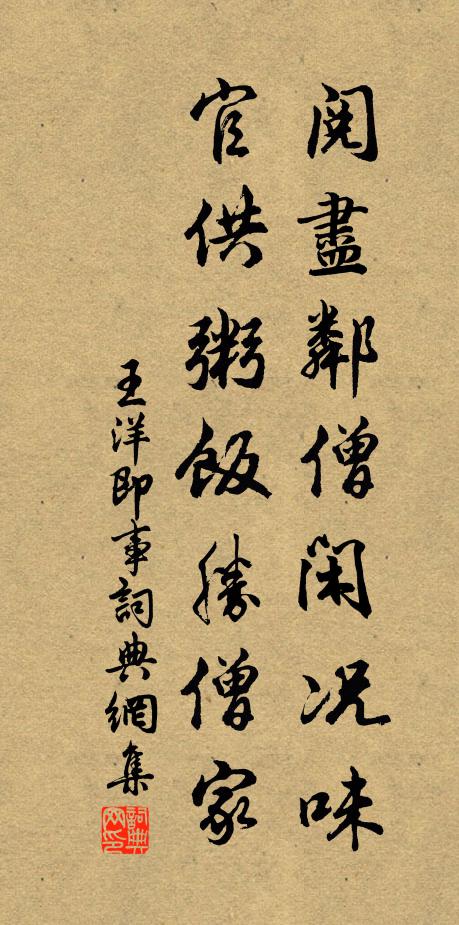 阅盡鄰僧闲况味
官供粥飯勝僧家
王洋即事詞典網集
詞典网印